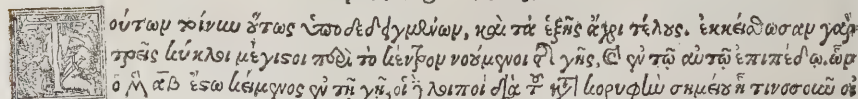 Τούτων τοίνυν οὕτως ὑποδεδειγμένων, καὶ τὰ ἑξῆς ἄχρι τέλους. ἐκκείσθωσαν γὰρ
τρεῖς κύκλοι μέγιστοι περὶ τὸ κέντρον νούμενοι τῆς γῆς, καὶ ἐν τῷ αὐτῷ ἐπιπέδῳ, ὧν
ὁ μὲν αβ ἔσω κείμενος ἐν τῇ γῇ, οἱ λοιποὶ διὰ τοῦ κατὰ κορυφὴν σημείου